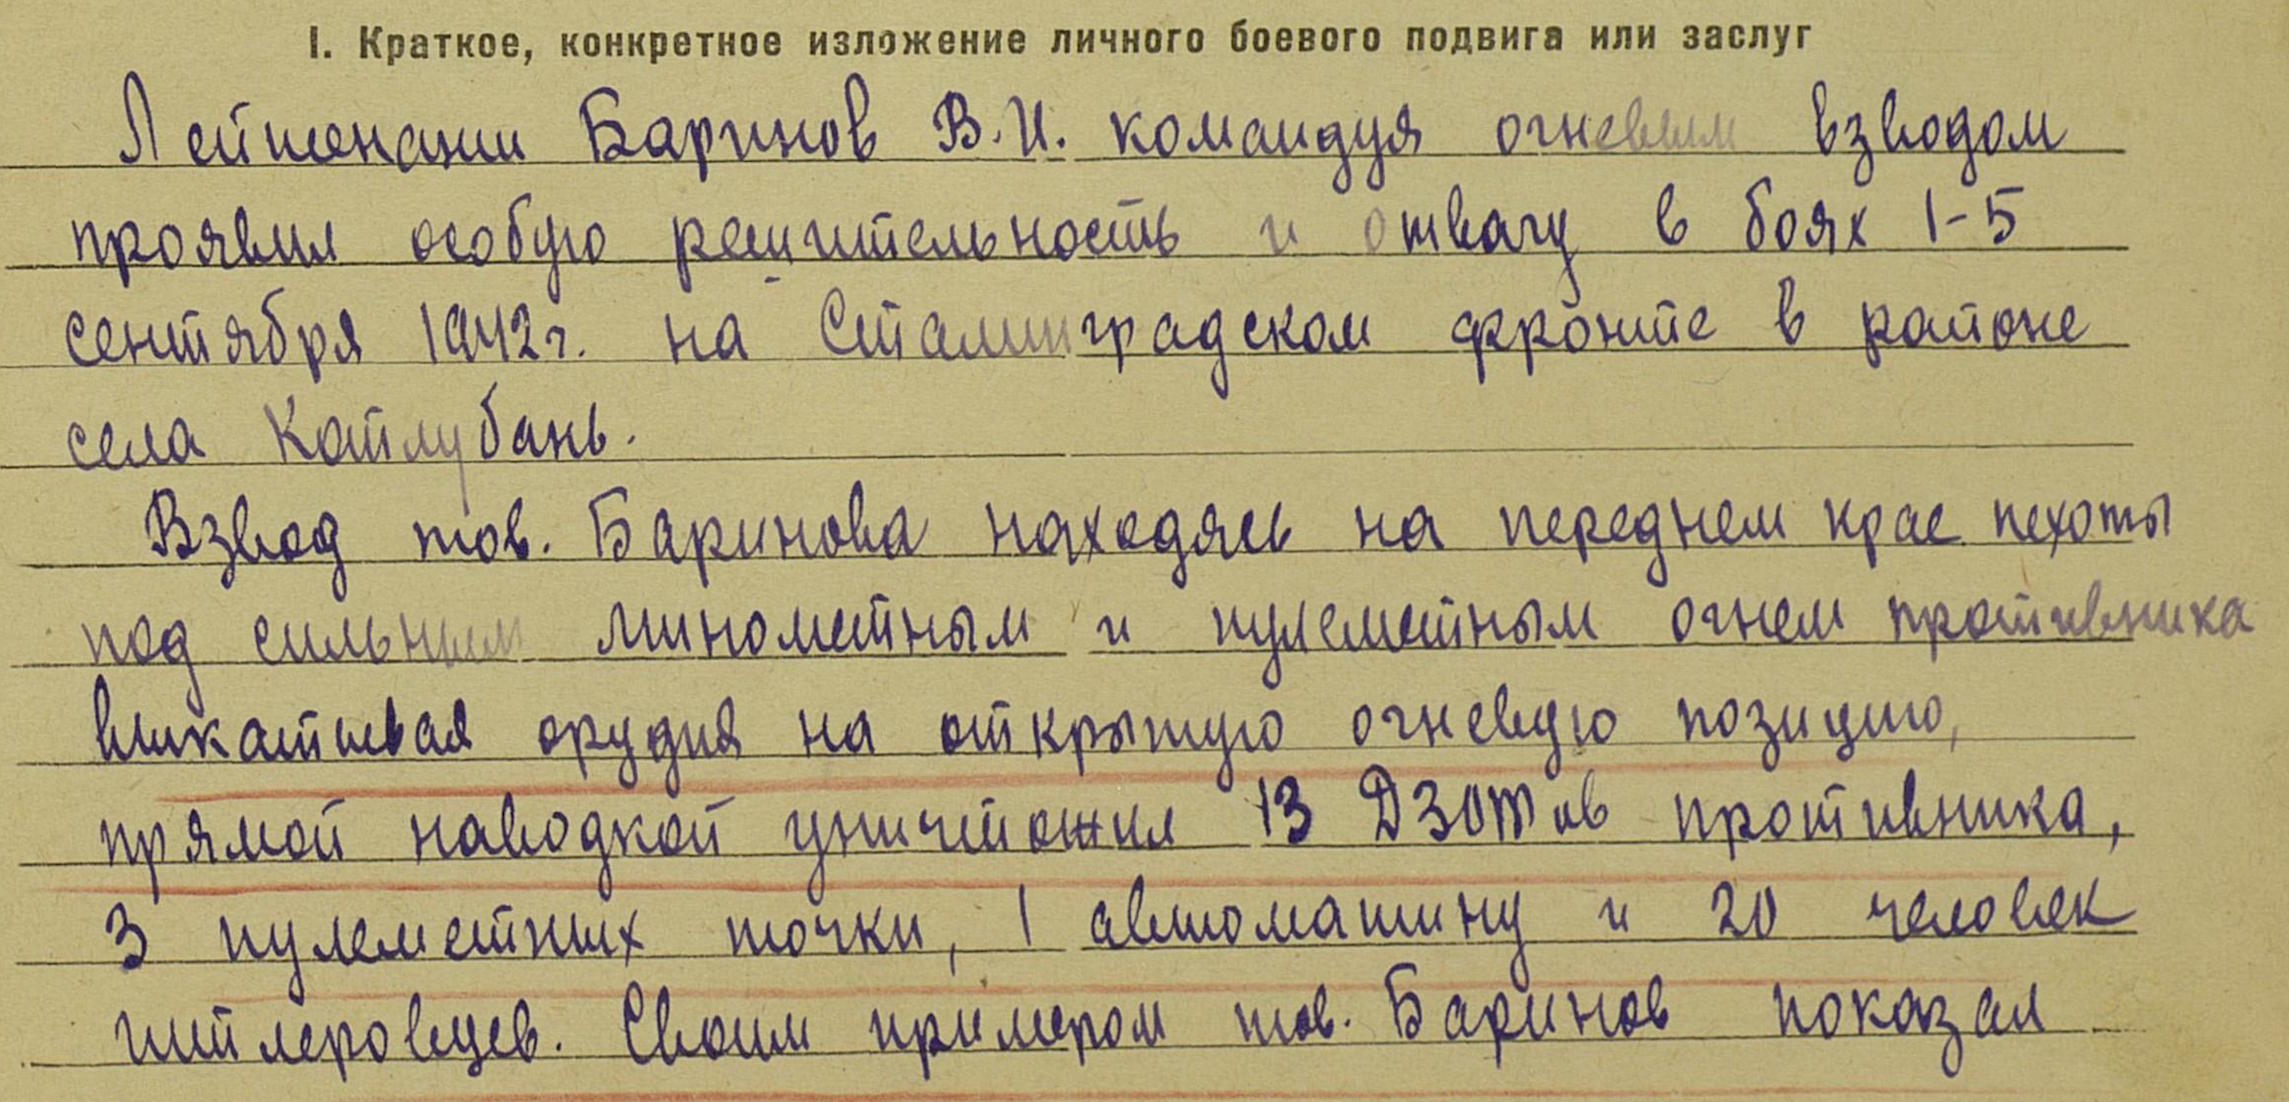 I. Краткое, конкретное изложение личного боевого подвига или заслуг
Лейтенант Баринов В.И. командуя огневым взводом
проявил особую решительность и отвагу в боях 1-5
сентября 1942г. на Сталинградском фронте в районе
села Котлубань.
Взвод тов. Баринова находясь на переднем крае пехоты
под сильным минометным и пулеметным огнем противника
выкатывая орудия на открытую огневую позицию,
прямой наводкой уничтожил 13 ДЗОТов противника,
3 пулеметных точки, 1 автомашину и 20 человек
гитлеровцев. Своим примером тов. Баринов показал